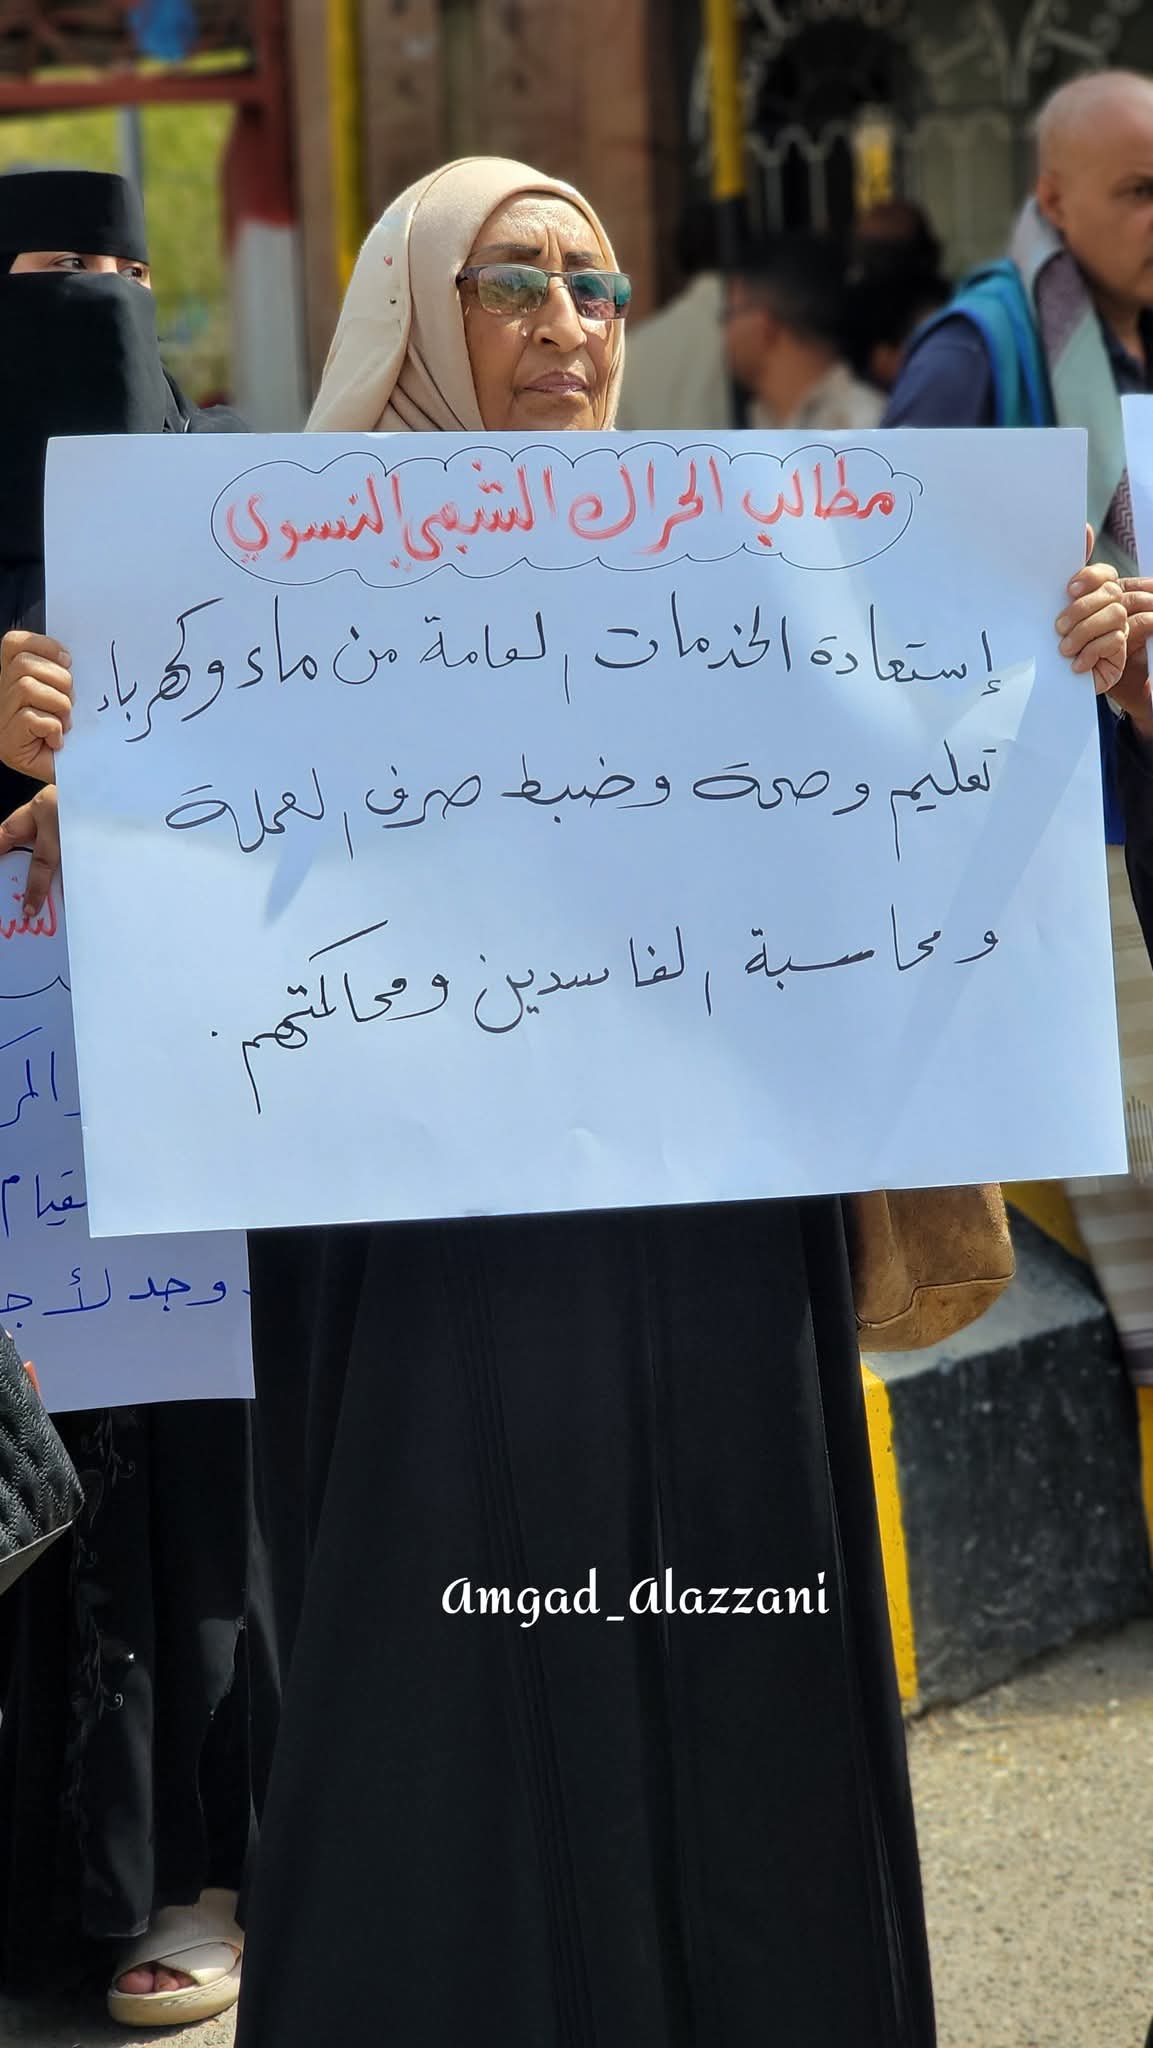 مطالب الحراك الشعبي النسوي
إستعادة الخدمات العامة من ماء وكهرباء
تعليم وصحة وضبط صرف العملة
ومحاسبة الفاسدين ومحاكمتهم.
وجد لأجـ
Amgad_Alazzani